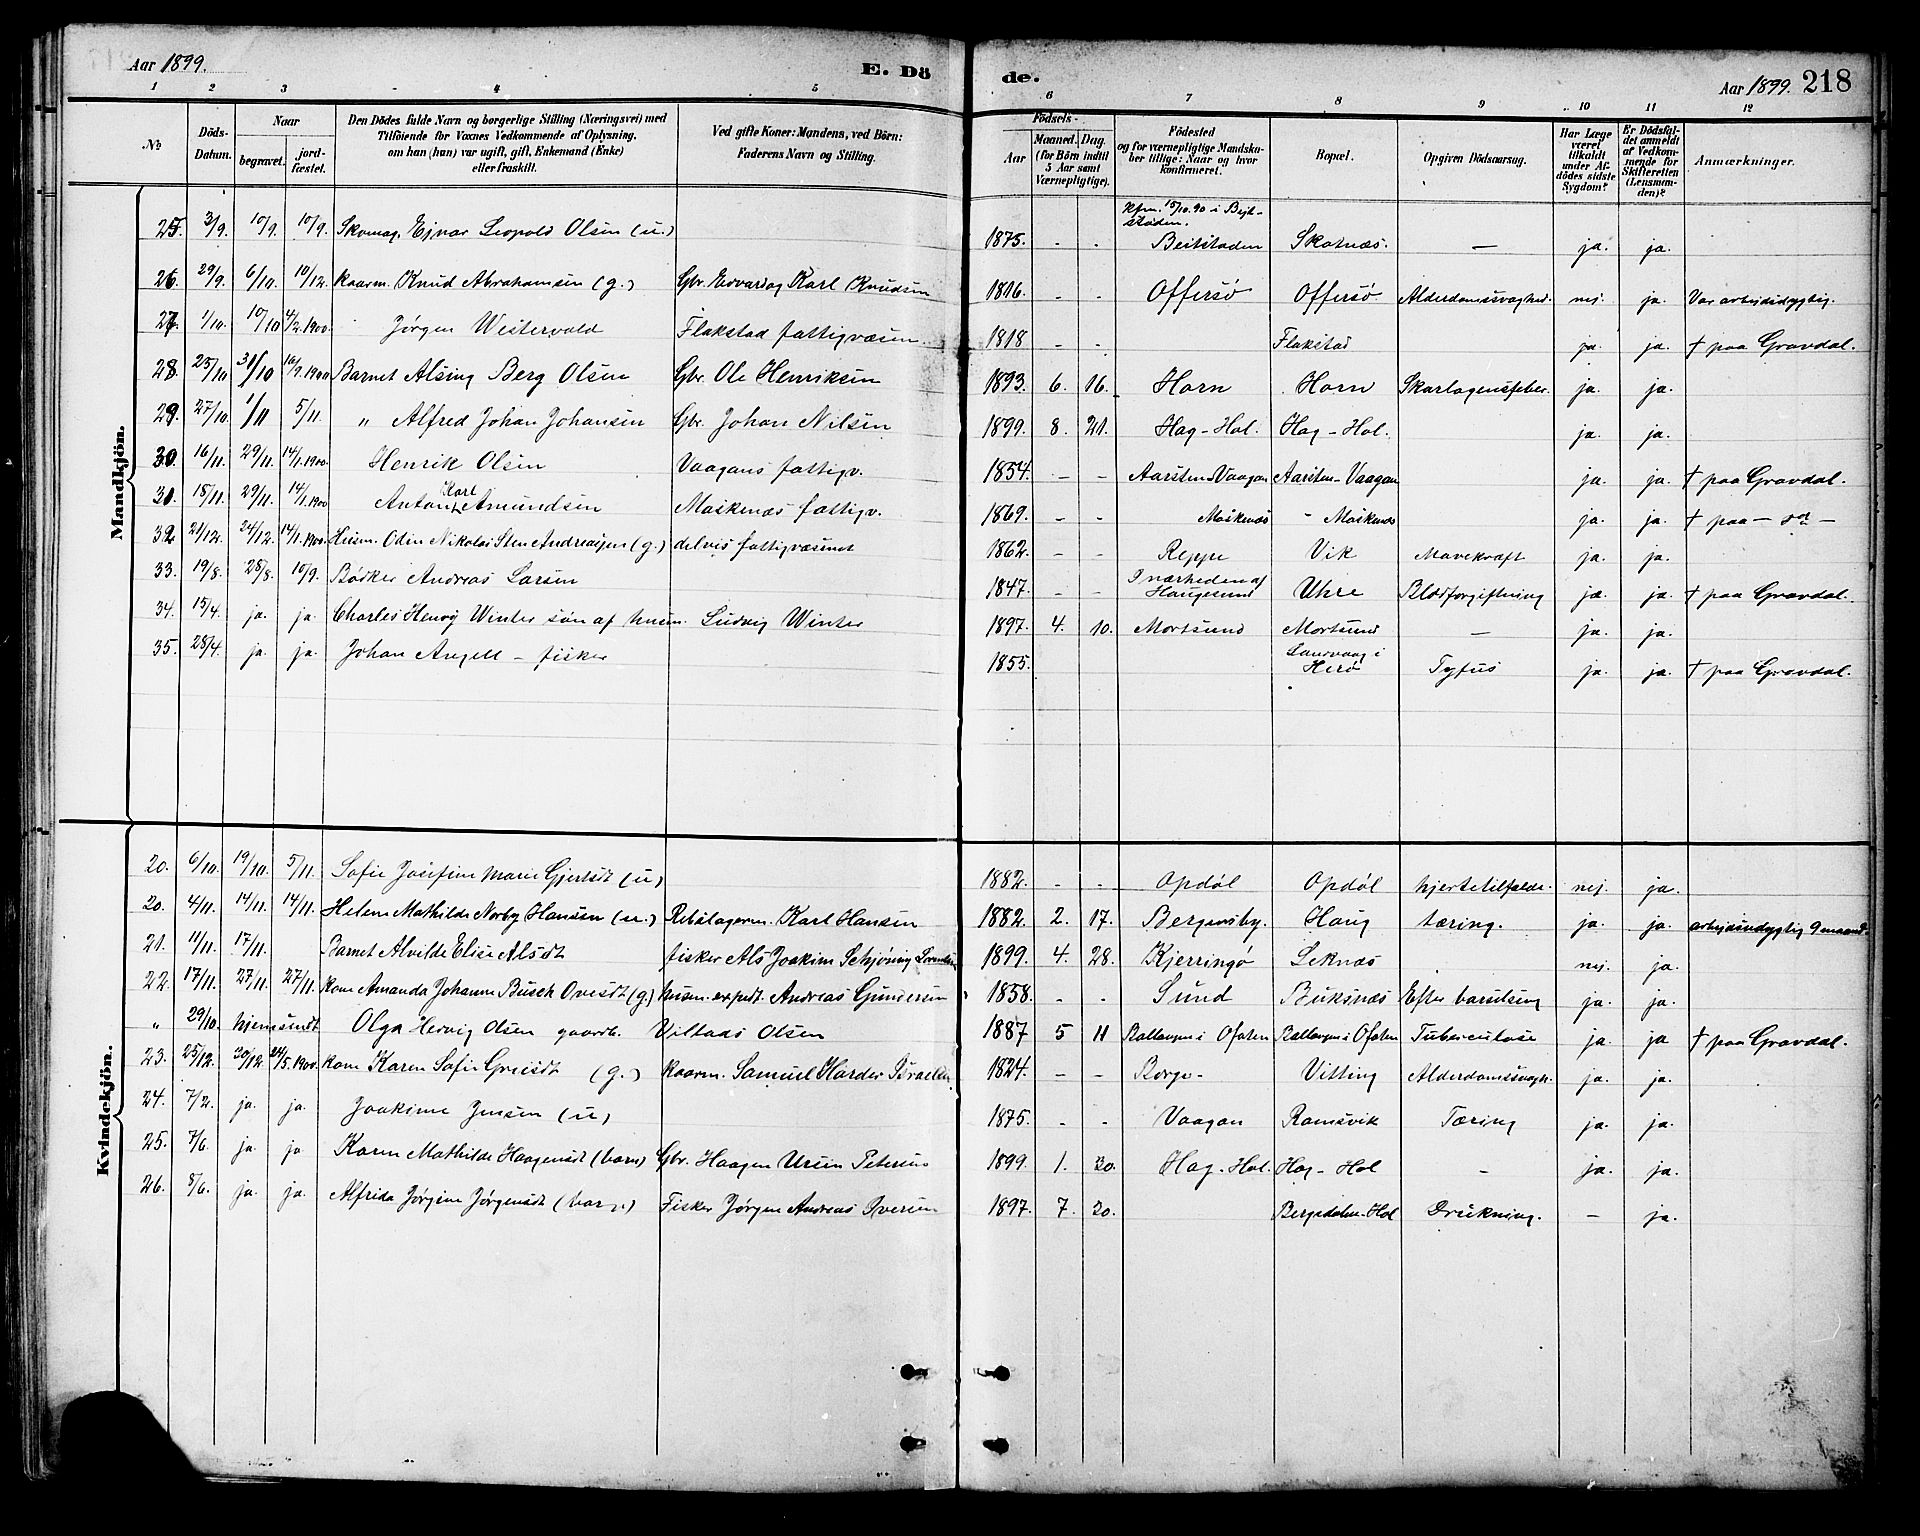 Aar 1899. E. Dö de. Aar 1899. 218
1 2 3 4 5 6 7 8 9 10 11 12
№ Döds-Datum. Naar begravet. jordfæstet. Den Dödes fulde Navn og borgerlige Stilling (Næringsvei) med Tilföiende for Voxnes Vedkommende af Oplysning, om han (hun) var ugift, gift, Enkemand (Enke) eller fraskilt. Ved gifte Koner: Mandens, ved Börn: Faderens Navn og Stilling. Födsels- Aar Maaned. Dag. (for Börn indtil 5 Aar samt Værnepligtige). Födested og for værnepligtige Mandskaber tillige: Naar og hvor konfirmeret. Bopæl. Opgiven Dödsaarsag. Har Læge været tilkaldt under Afdödes sidste Sygdom? Er Dödsfaldet anmeldt af Vedkommende for Skifteretten (Lensmanden)? Anmærkninger.
Mandkjön.
25. 3/9. 10/9. 10/9. Skomag. Ejnar Leopold Olsen (u.) 1875. - - kfm. 5/10.90 i Bejtstaden. Beitstaden Skotnæs. — ja. ja.
26. 29/9. 6/10. 10/12. kaarm. Knud Abrahamsen (g.) Gbr. Edvard og Karl Knudsen 1816. - - Offersø Offersø Alderdomssvaghed. nej. ja. Var arbejdsdygtig.
27. 1/10. 10/10 4/2.1900. Jørgen Westervold Flakstad fattigvæsen. 1818 - - Flakstad ja. ja. † paa Gravdal.
28. 25/10 31/10 16/9.1900 Barnet Alsing Berg Olsen Gbr. Ole Henriksen 1893. 6. 16. Horn Horn Skarlagensfeber ja. ja.
29. 27/10. 1/11 5/11. " Alfred Johan Johansen Gbr. Johan Nilsen 1899. 8. 21. Hag-Hol. Hag-Hol. ja. ja.
30. 16/11. 29/11. 14/1.1900. Henrik Olsen Vaagans fattigv. 1854. - - Aarsten-Vaagan Aarsten-Vaagan ja. ja. † paa Gravdal.
31. 18/11. 29/11. 14/1.1900 Anton Karl Amundsen Moskenæs fattigv. 1869. - - Moskenæs - Moskenæs ja. ja. † paa - do -
32. 21/12. 24/12. 14/1.1900. Husm. Odin Nikolai Sten Andreassen (g.) delvis fattigvæsenet 1862. - - Reppe Vik Mavekræft ja. ja.
33. 19/8. 28/8. 10/9. Bødker Andreas Larsen 1847. - - I nærheden af Haugesund Uhre Blodforgiftning ja. ja. † paa Gravdal.
34. 15/4. ja. ja. Charles Henry Winter søn af husm. Ludvig Winter 1897. 4. 10. Mortsund Mortsund — ja. ja.
35. 28/4. ja. ja. Johan Angell - fisker 1855. Sandvaag i Herø Tyfus ja. ja. † paa Gravdal.
Kvindekjön.
20. 6/10. 19/10. 5/11. Sofie Josefine Marie Gjertsdt (u) 1882. - - Opdøl Opdøl hjertetilfælde. nej. ja.
20. 4/11. 14/11. 14/11. Helene Mathilde Norby Hansen (u.) Rebslagerm. Karl Hansen 1882. 2. 17. Bergensby. Haug tæring. ja. ja. arbejdsudygtig 9 maaned.
21. 11/11. 17/11. Barnet Alvilde Elise Alsdt fisker Als Joakim Schjøning Lorentsen 1899. 4. 28. Kjerringø Leknæs nej. ja.
22. 17/11. 27/11. 27/11. kone Amanda Johanne Busch Ovesdt (g.) husm. expedt. Andreas Gundersen 1858. - - Sund Buksnæs Efter barselseng ja. ja.
" 29/10. hjemsendt Olga Hervig Olsen gaardb. Villads Olsen 1887 5 11 Ballangen i Ofoten Ballangen i Ofoten Tuberculose ja. ja † paa Gravdal.
23. 25/12. 30/12. 24/5.1900. kone Karen Sofie Greisdt (g.) kaarm. Samuel Harder Israelsen. 1824. - - Borge- Vitting Alderdomssvagh. ja. ja.
24. 7/2. ja. ja. Joakime Jensen (u) 1875. - - Vaagan Ramsvik Tæring ja. ja.
25. 7/6. ja. ja Karen Mathilde Haagensdt (barn) Gbr. Haagen Ursin Petersen 1899. 1. 30. Hag-Hol. Hag-Hol - ja. ja.
26. 8/6. ja. ja. Alfrida Jørgine Jørgensdt (barn) Fisker Jørgen Andreas Iversen 1897. 7. 20. Bergsdalen-Hol Drukning. - ja.